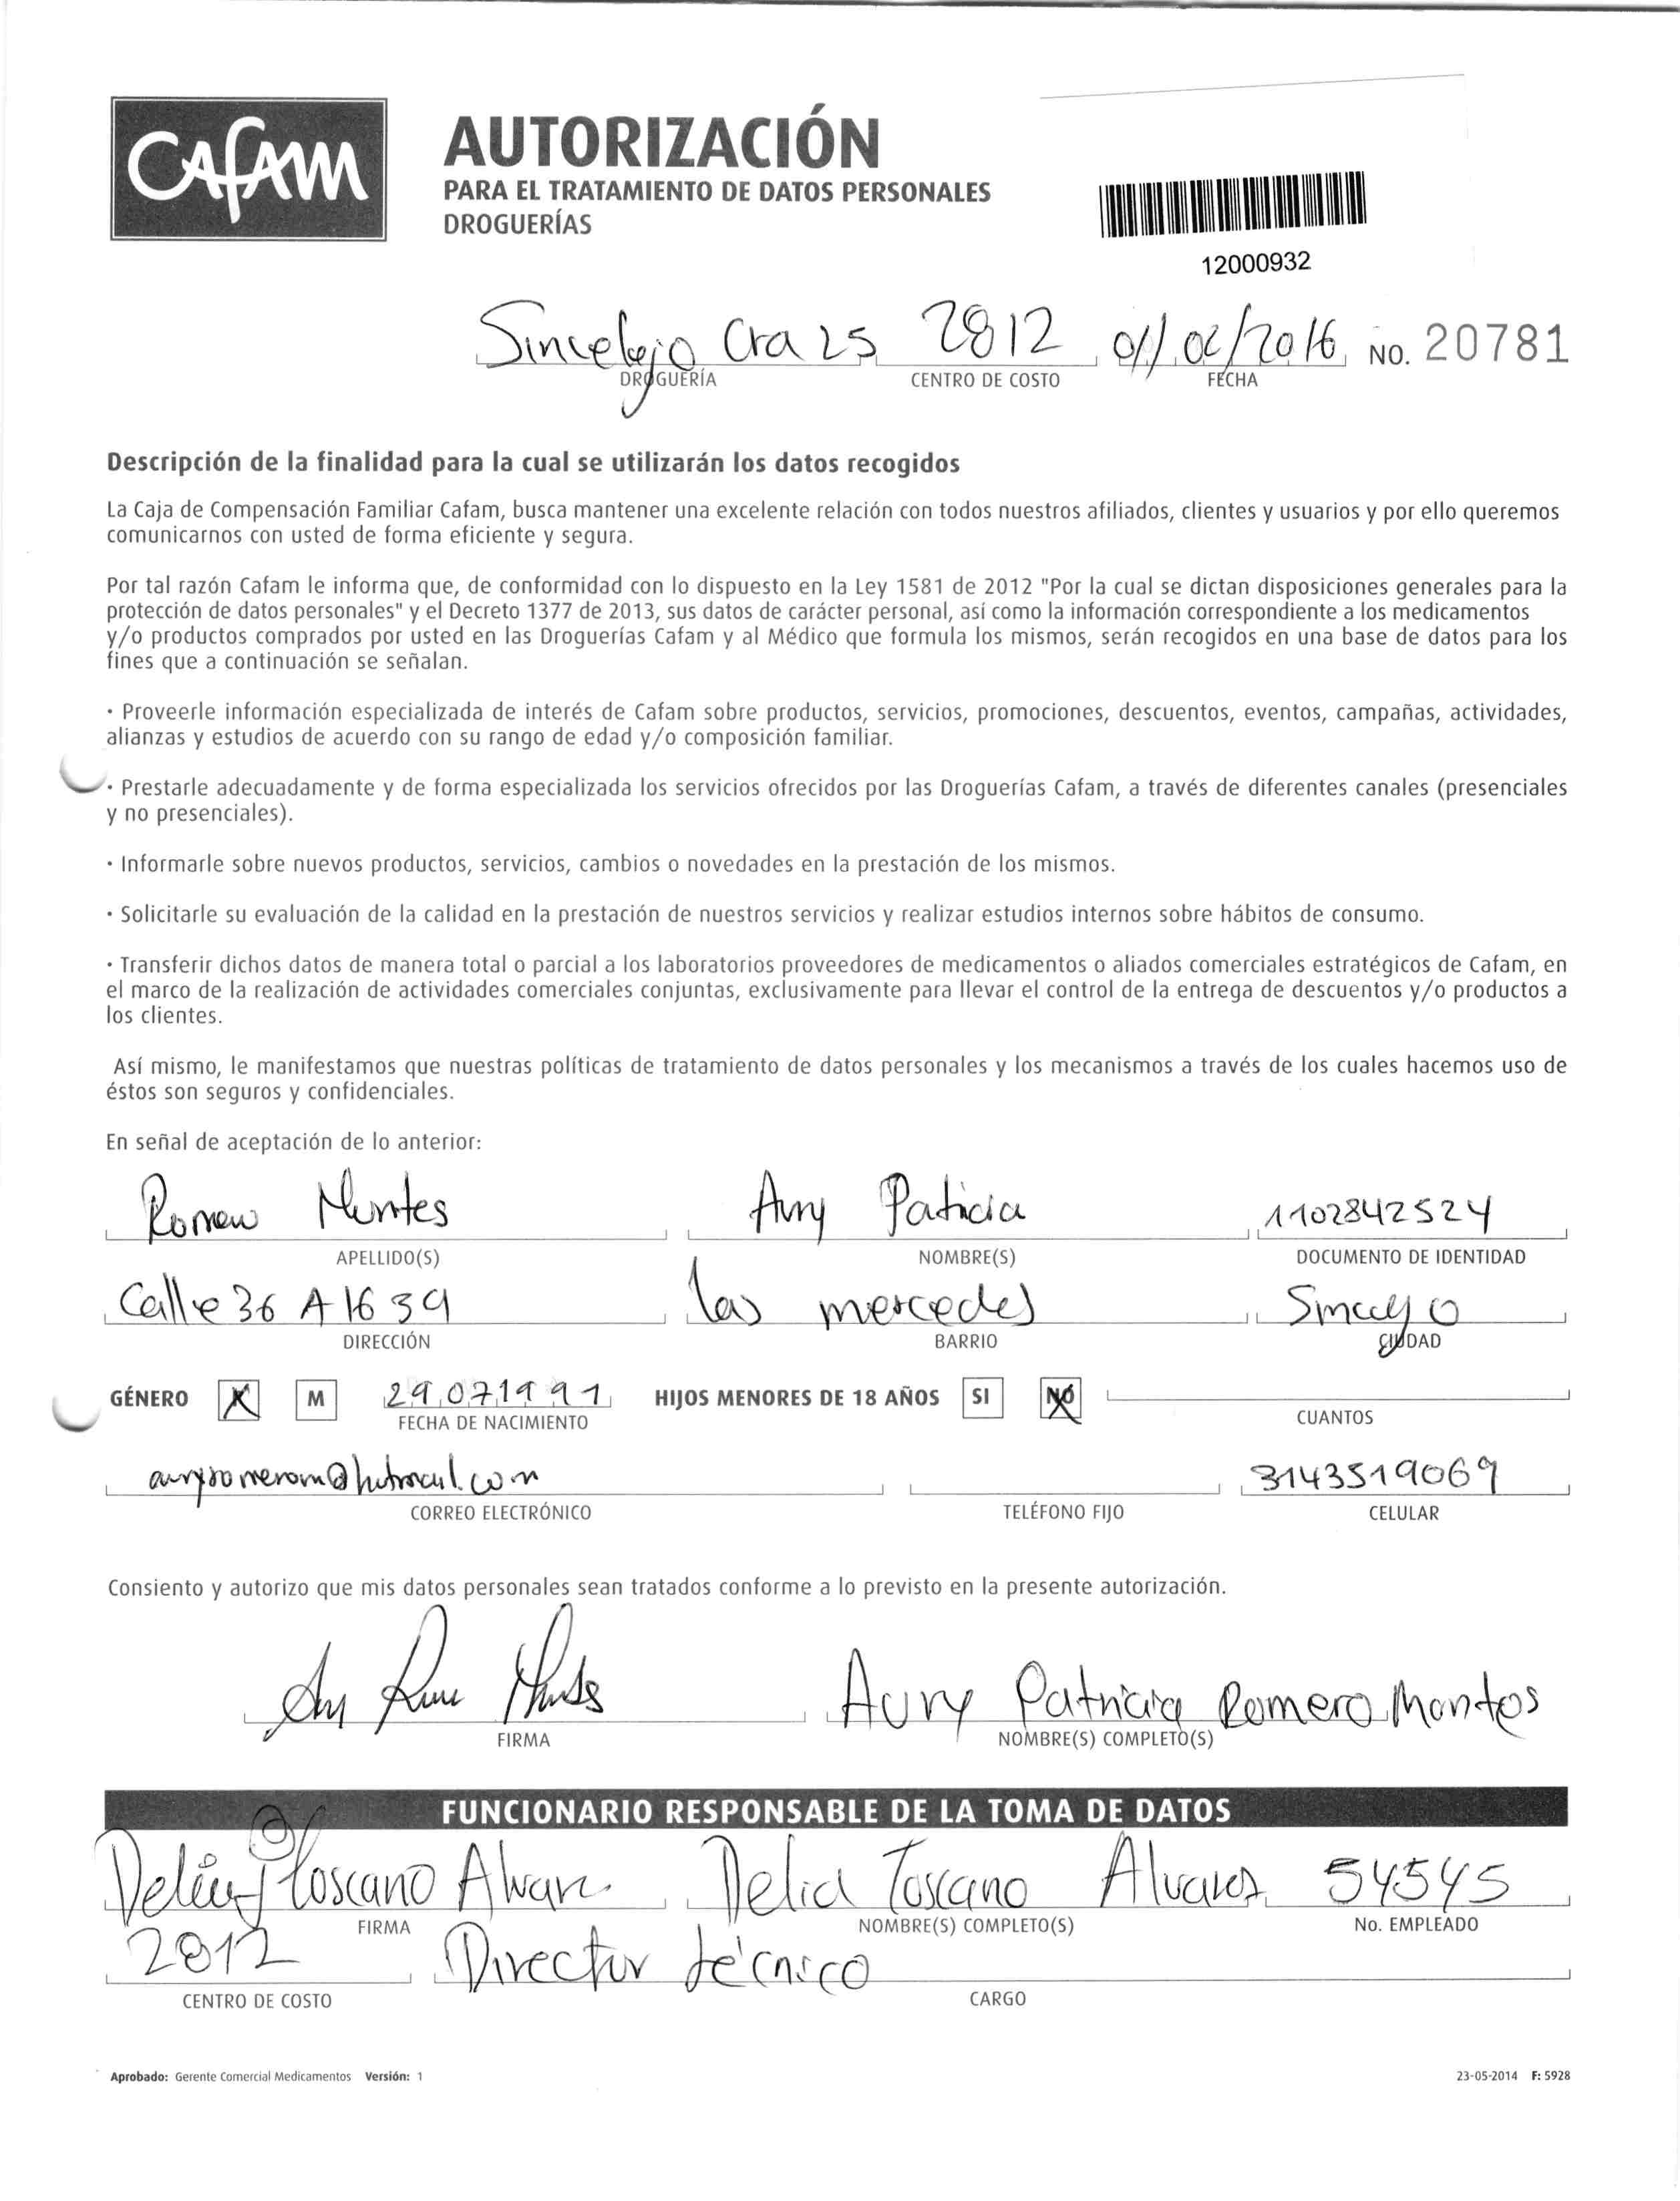 CAFAM
AUTORIZACIÓN
PARA EL TRATAMIENTO DE DATOS PERSONALES
DROGUERÍAS
12000932
Sincelejo Cra 25 2812 01/02/2016 No. 20781
DROGUERÍA CENTRO DE COSTO FECHA
Descripción de la finalidad para la cual se utilizarán los datos recogidos
La Caja de Compensación Familiar Cafam, busca mantener una excelente relación con todos nuestros afiliados, clientes y usuarios y por ello queremos
comunicarnos con usted de forma eficiente y segura.
Por tal razón Cafam le informa que, de conformidad con lo dispuesto en la Ley 1581 de 2012 "Por la cual se dictan disposiciones generales para la
protección de datos personales" y el Decreto 1377 de 2013, sus datos de carácter personal, así como la información correspondiente a los medicamentos
y/o productos comprados por usted en las Droguerías Cafam y al Médico que formula los mismos, serán recogidos en una base de datos para los
fines que a continuación se señalan.
· Proveerle información especializada de interés de Cafam sobre productos, servicios, promociones, descuentos, eventos, campañas, actividades,
alianzas y estudios de acuerdo con su rango de edad y/o composición familiar.
· Prestarle adecuadamente y de forma especializada los servicios ofrecidos por las Droguerías Cafam, a través de diferentes canales (presenciales
y no presenciales).
· Informarle sobre nuevos productos, servicios, cambios o novedades en la prestación de los mismos.
· Solicitarle su evaluación de la calidad en la prestación de nuestros servicios y realizar estudios internos sobre hábitos de consumo.
· Transferir dichos datos de manera total o parcial a los laboratorios proveedores de medicamentos o aliados comerciales estratégicos de Cafam, en
el marco de la realización de actividades comerciales conjuntas, exclusivamente para llevar el control de la entrega de descuentos y/o productos a
los clientes.
Así mismo, le manifestamos que nuestras políticas de tratamiento de datos personales y los mecanismos a través de los cuales hacemos uso de
éstos son seguros y confidenciales.
En señal de aceptación de lo anterior:
Romero Montes Aury Patricia 1102842524
APELLIDO(S) NOMBRE(S) DOCUMENTO DE IDENTIDAD
Calle 36 A 16 39 las mercedes Sincelejo
DIRECCIÓN BARRIO CIUDAD
GÉNERO X M 29 07 1991 HIJOS MENORES DE 18 AÑOS SI NO
FECHA DE NACIMIENTO CUANTOS
auryromerom@hotmail.com 3143519069
CORREO ELECTRÓNICO TELÉFONO FIJO CELULAR
Consiento y autorizo que mis datos personales sean tratados conforme a lo previsto en la presente autorización.
Aury Patricia Romero Montes
FIRMA NOMBRE(S) COMPLETO(S)
FUNCIONARIO RESPONSABLE DE LA TOMA DE DATOS
Toscano Delia Toscano Alvarez 54545
FIRMA NOMBRE(S) COMPLETO(S) No. EMPLEADO
2812 Director técnico
CENTRO DE COSTO CARGO
Aprobado: Gerente Comercial Medicamentos Versión: 1 23-05-2014 F: 5928